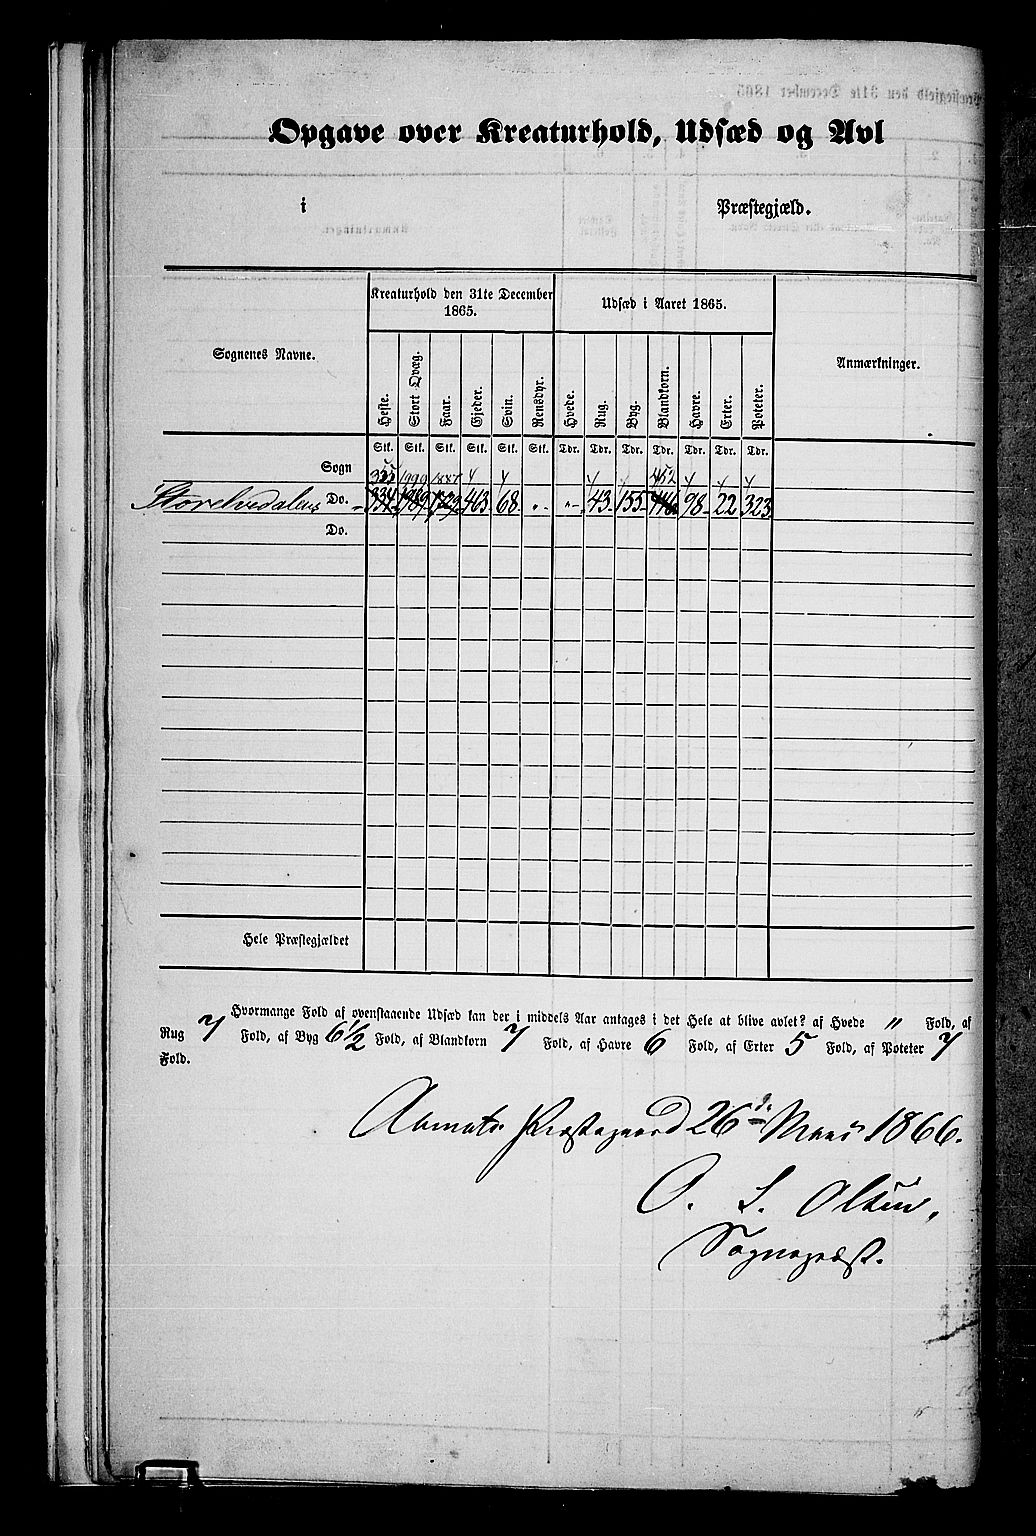 Opgave over Kreaturhold, Udsæd og Avl
i Præstegjæld.
Sognenes Navne. Kreaturhold den 31te December 1865. Udsæd i Aaret 1865. Anmærkninger.
Heste. Stort Qvæg. Faar. Gjeder. Svin. Rensdyr. Hvede. Rug. Byg. Blandkorn. Havre. Erter. Poteter.
Stk. Stk. Stk. Stk. Stk. Stk. Tdr. Tdr. Tdr. Tdr. Tdr. Tdr. Tdr.
Sogn 335 1999 452
Storelvedalens Do. 334 1989 463 68 " " 43 155 446 98 22 323
Do.
Hele Præstegjældet
Hvormange Fold af ovenstaaende Udsæd kan der i middels Aar antages i det Hele at blive avlet? af Hvede " Fold, af
Rug 7 Fold, af Byg 6 1/2 Fold, af Blandkorn 7 Fold, af Havre 6 Fold, af Erter 5 Fold, af Poteter 7
Fold.
Aamots Præstegaard 26 d. Marts 1866.
O. S. Olsen,
Sognepræst.